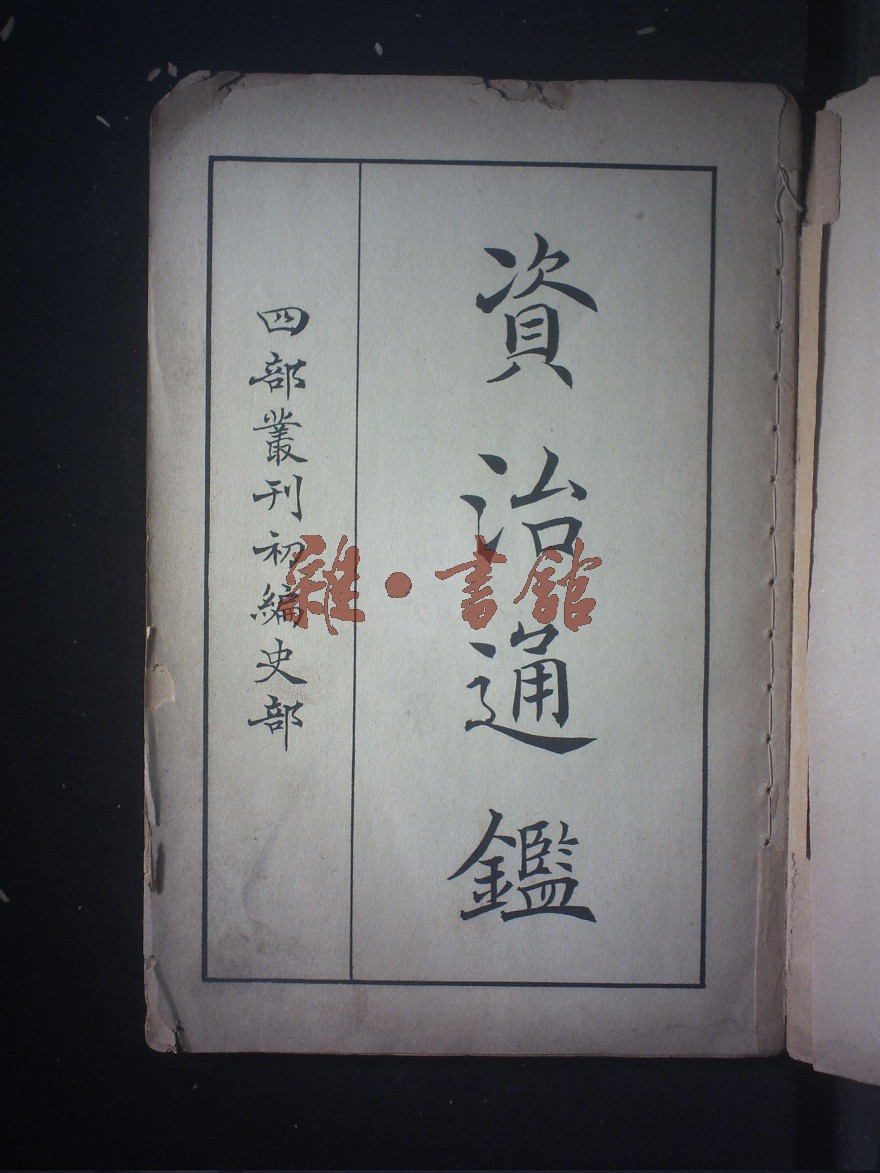 資治通鑑
四部叢刊初編史部
雜·書館